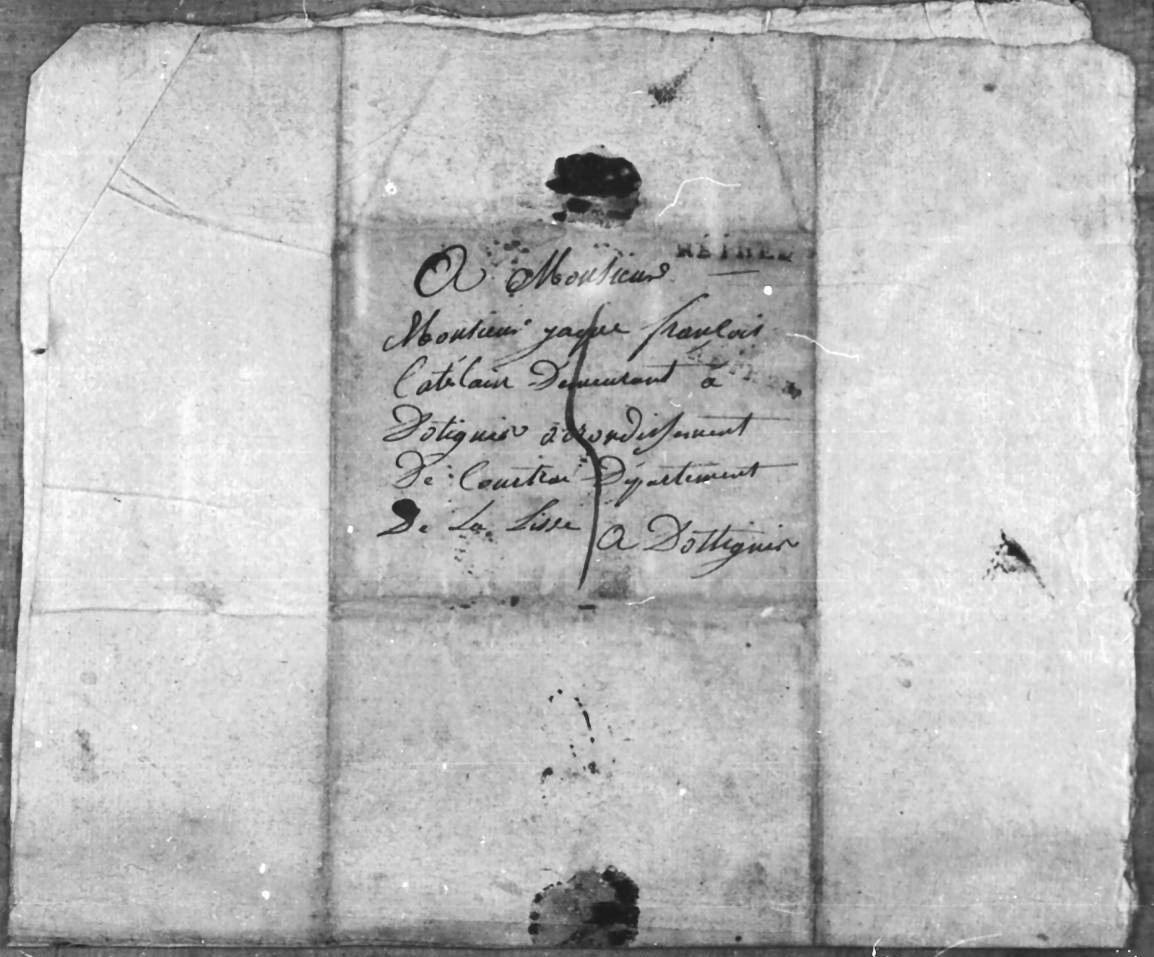 RETHEL
A Monsieur
Monsieur jaque francois
Catelain Demeurant a
Dotignier arondissement
De Courtrai Département
De La Lisse
A Dottignier